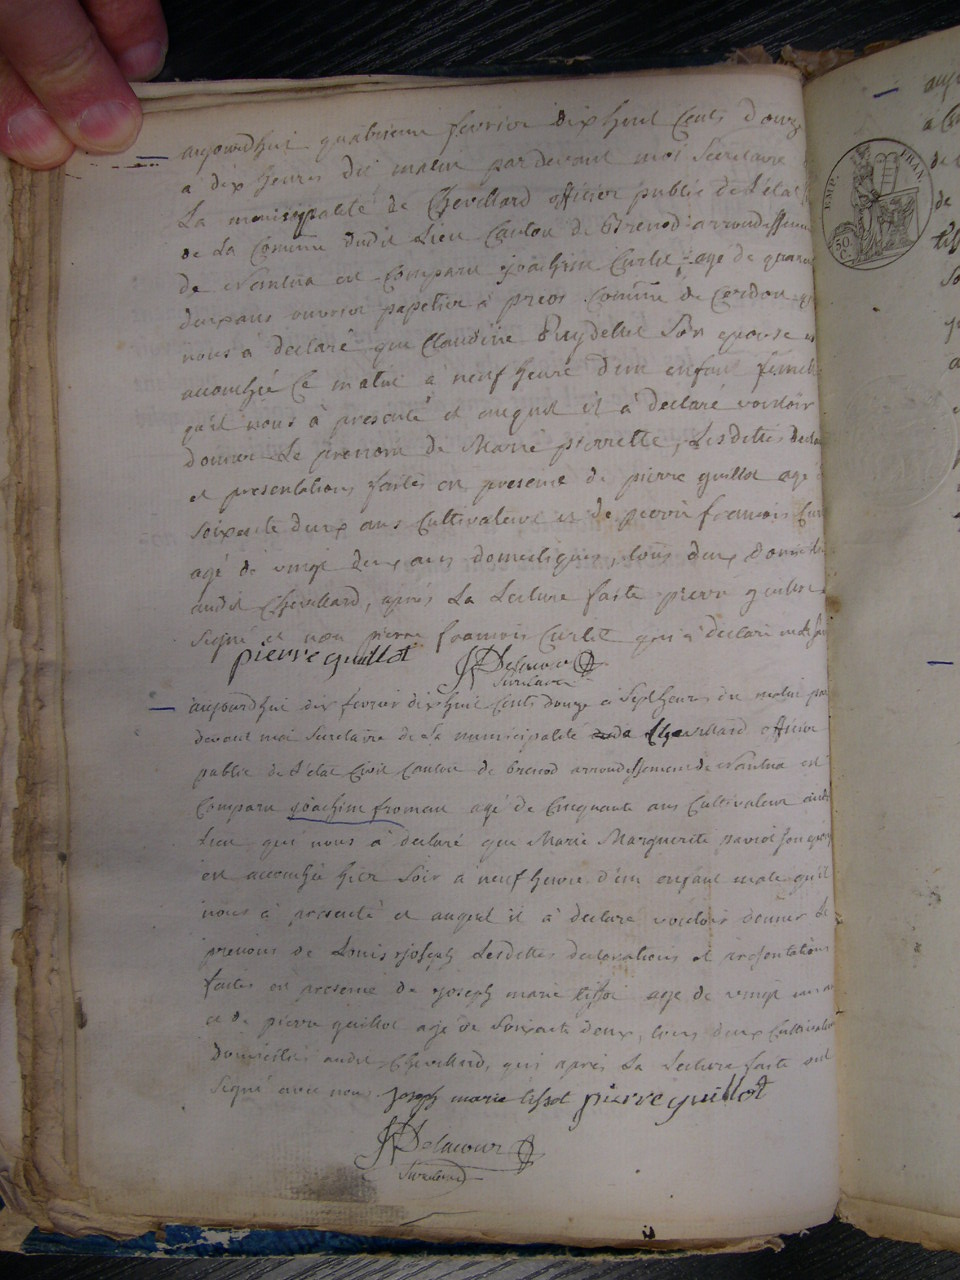 aujourdhui quatrieme fevrier dix huit Cents douze
a dix heures du matin pardevant moi Secretaire
La municipalité de Chevillard officier public de L'état
de La Comune dudit Lieu Canton de Brenod arrondissem
de Nantua est Comparu joachim Curlet agé de quaran
deux ans ouvrier papetier à préos Comune de Cerdon
nous à déclaré que Claudine Puydellet Son epouse
accouchée Ce matin a neuf heure d'un enfant femel
qu'il nous à presenté et auquel il à déclaré vouloir
donner Le prenom de Marie pierrette, Lesdittes decla
et presentations faites en presence de pierre guillot agé
soixante deux ans Cultivateur et de pierre francois Cur
agé de vingt deux ans domestiques, tous deux domicilié
audit Chevillard, après La Lecture faite pierre guillot
signé et non pierre francois Curlet qui à déclaré
pierre guillot Delacour
Secretaire
aujourdhui dix fevrier dix huit Cents douze a Sept heures du matin par
devant moi Secretaire de La municipalité de Chevillard officier
public de L'état Civil Canton de brenod arrondissement de Nantua est
Comparu joachim froment agé de Cinquante ans Cultivateur
Lieu qui nous à déclaré que Marie Marguerite Son epouse
est accouchée hier Soir a neuf heure d'un enfant male qu'il
nous à presenté et auquel il à declaré vouloir donner Le
prenoms de Louis joseph Lesdittes declarations et presentations
faites en presence de joseph marie tissot agé de vingt
et de pierre guillot agé de Soixante deux, tous deux Cultivate
domiciliés audit Chevillard, qui après La Lecture faite ont
Signé avec nous joseph marie tissot pierre guillot
Delacour
Secretaire
EMP. FRAN.
50
C.